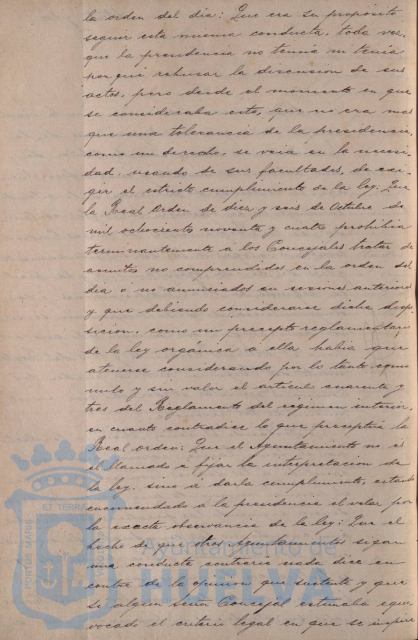 la orden del dia: Que era su propósito
seguir esta misma conducta, toda vez,
que la presidencia no temia ni tenia
porqué rehusar la discusion de sus
actos, pero desde el momento en que
se consideraba esto, que no era mas
que una tolerancia de la presidencia,
como un derecho, se veia en la necesi-
dad, usando de sus facultades, de exi-
gir el estricto cumplimiento de la ley. Que
la Real Orden de diez y seis de Octubre de
mil ochociento noventa y cuatro prohibia
terminantemente a los Concejales tratar de
asuntos no comprendidos en la orden del
dia ó no anunciados en sesiones anteriores
y que debiendo considerarse dicha dispo-
sicion, como un precepto reglamentario
de la ley orgánica a ella habia que
atenerse considerando por lo tanto como
nulo y sin valor el articul cuarenta y
tres del Reglamento del régimen interior,
en cuanto contradice lo que preceptúa la
Real orden: Que el Ayuntamiento no es
el llamado á fijar la interpretacion de
la ley, sino á darla cumplimiento, estando
encomendado a la presidencia el velar por
la exacta observancia de la ley: Que el
hecho de que otros Ayuntamientos sigan
una conducta contraria nada dice en
contra de la opinion que sustenta y que
si algun Señor Concejal estimaba equi-
vocado el criterio legal en que se inspira
PORTUS MARIS ET TERRAE
Ayuntamiento de
HUELVA